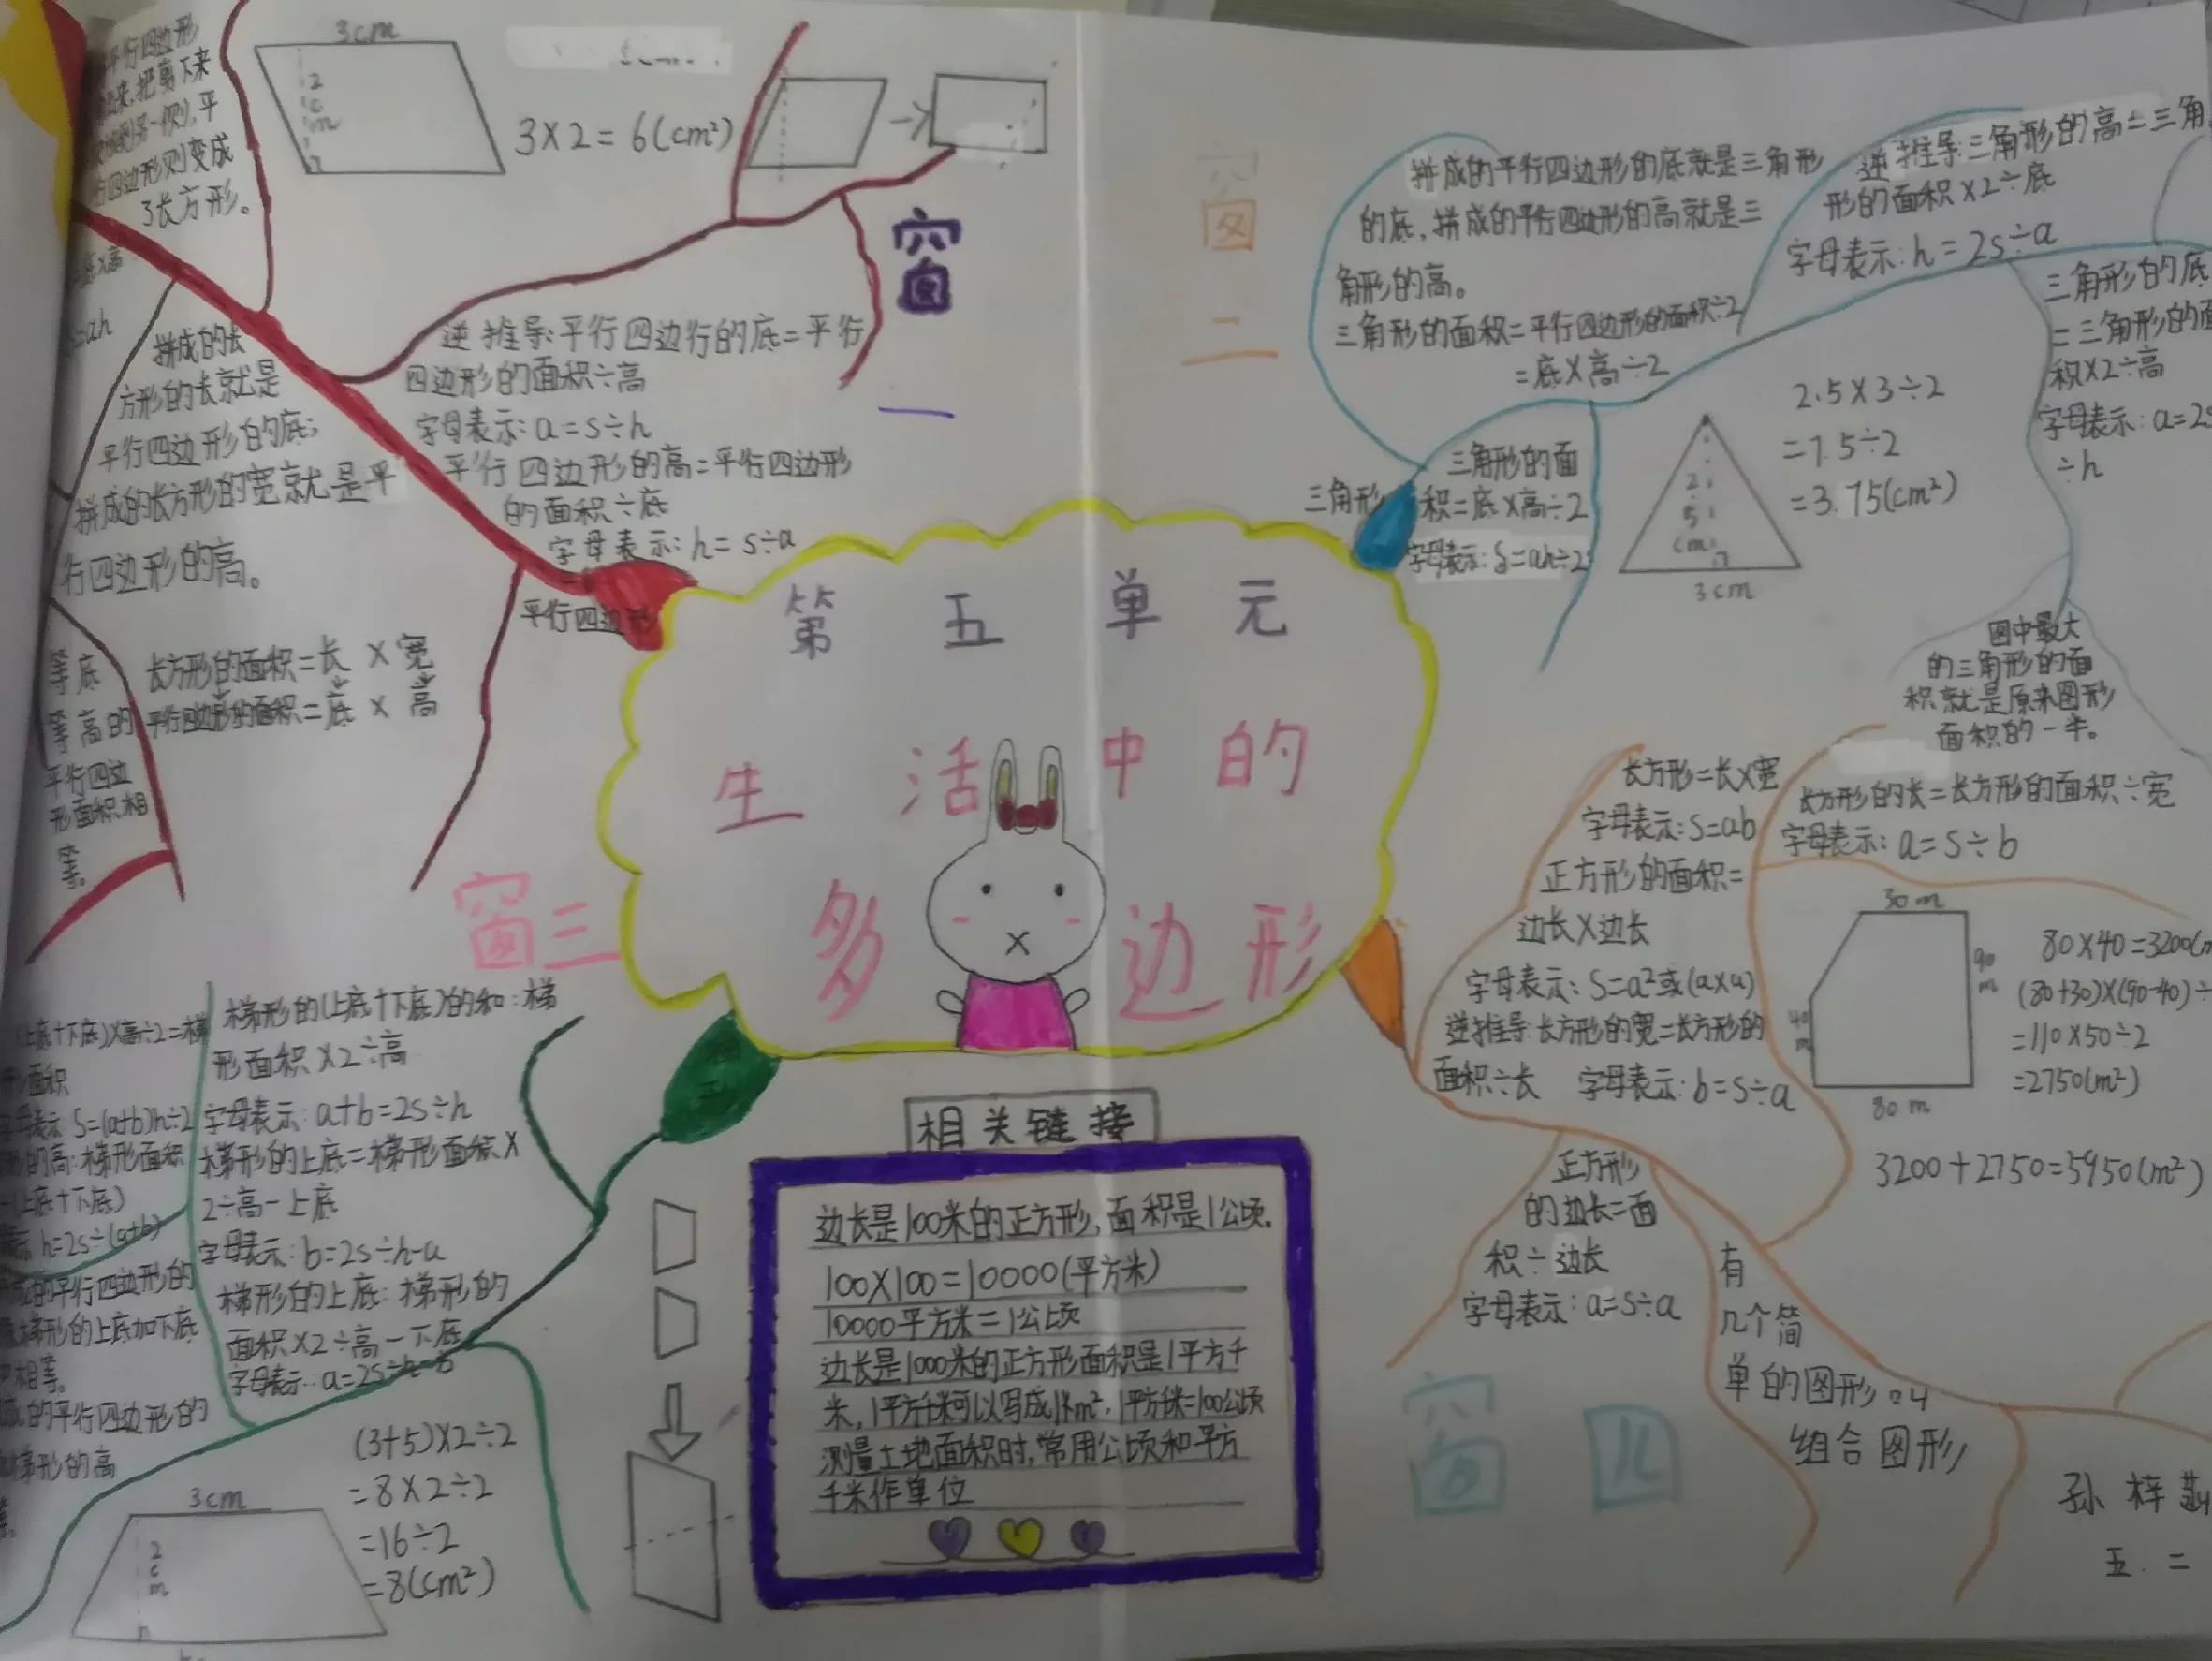 平行四边形
来,把剪下来
到另一侧,平
四边形则变成
了长方形。
拼成的长
方形的长就是
平行四边形的底;
拼成的长方形的宽就是平
行四边形的高。
等底
等高的
平行四边
形面积相
等。
长方形的面积=长×宽
平行四边形的面积=底×高
3cm
2
c
m
3×2=6(cm²)
窗
一
逆推导:平行四边行的底=平行
四边形的面积÷高
字母表示:a=s÷h
平行四边形的高=平行四边形
的面积÷底
字母表示:h=s÷a
平行四边形
窗
二
拼成的平行四边形的底就是三角形
的底,拼成的平行四边形的高就是三
角形的高。
三角形的面积=平行四边形的面积÷2
=底×高÷2
逆推导:三角形的高=三角
形的面积×2÷底
字母表示:h=2s÷a
三角形的底
=三角形的面
积×2÷高
字母表示:a=2s
÷h
三角形
三角形的面
积=底×高÷2
字母表示:S=ah÷2
2.5×3÷2
=7.5÷2
=3.75(cm²)
2
.
5
cm
3cm
图中最大
的三角形的面
积就是原来图形
面积的一半。
第五单元
生活中的
多边形
窗三
(上底+下底)×高÷2=梯
形面积
字母表示S=(a+b)h÷2
的高:梯形面积
(上底+下底)
h=2s÷(a+b)
的平行四边形的
梯形的上底加下底
相等。
成的平行四边形的
梯形的高
梯形的(上底+下底)的和:梯
形面积×2÷高
字母表示:a+b=2s÷h
梯形的上底=梯形面积×
2÷高-上底
字母表示:b=2s÷h-a
梯形的上底:梯形的
面积×2÷高-下底
字母表示:a=2s÷h-b
3cm
2
c
m
(3+5)×2÷2
=8×2÷2
=16÷2
=8(cm²)
相关链接
边长是100米的正方形,面积是1公顷.
100×100=10000(平方米)
10000平方米=1公顷
边长是1000米的正方形面积是1平方千
米,1平方千米可以写成1km²,1平方千米=100公顷
测量土地面积时,常用公顷和平方
千米作单位
长方形=长×宽
字母表示:S=ab
正方形的面积=
边长×边长
字母表示:S=a²或(a×a)
逆推导:长方形的宽=长方形的
面积÷长 字母表示:b=s÷a
长方形的长=长方形的面积÷宽
字母表示:a=s÷b
30m
90
m
40
m
80m
80×40=3200(m
(80+30)×(90-40)÷
=110×50÷2
=2750(m²)
3200+2750=5950(m²)
正方形
的边长=面
积÷边长
字母表示:a=s÷a
有
几个简
单的图形
组合图形
窗四
孙梓
五.二